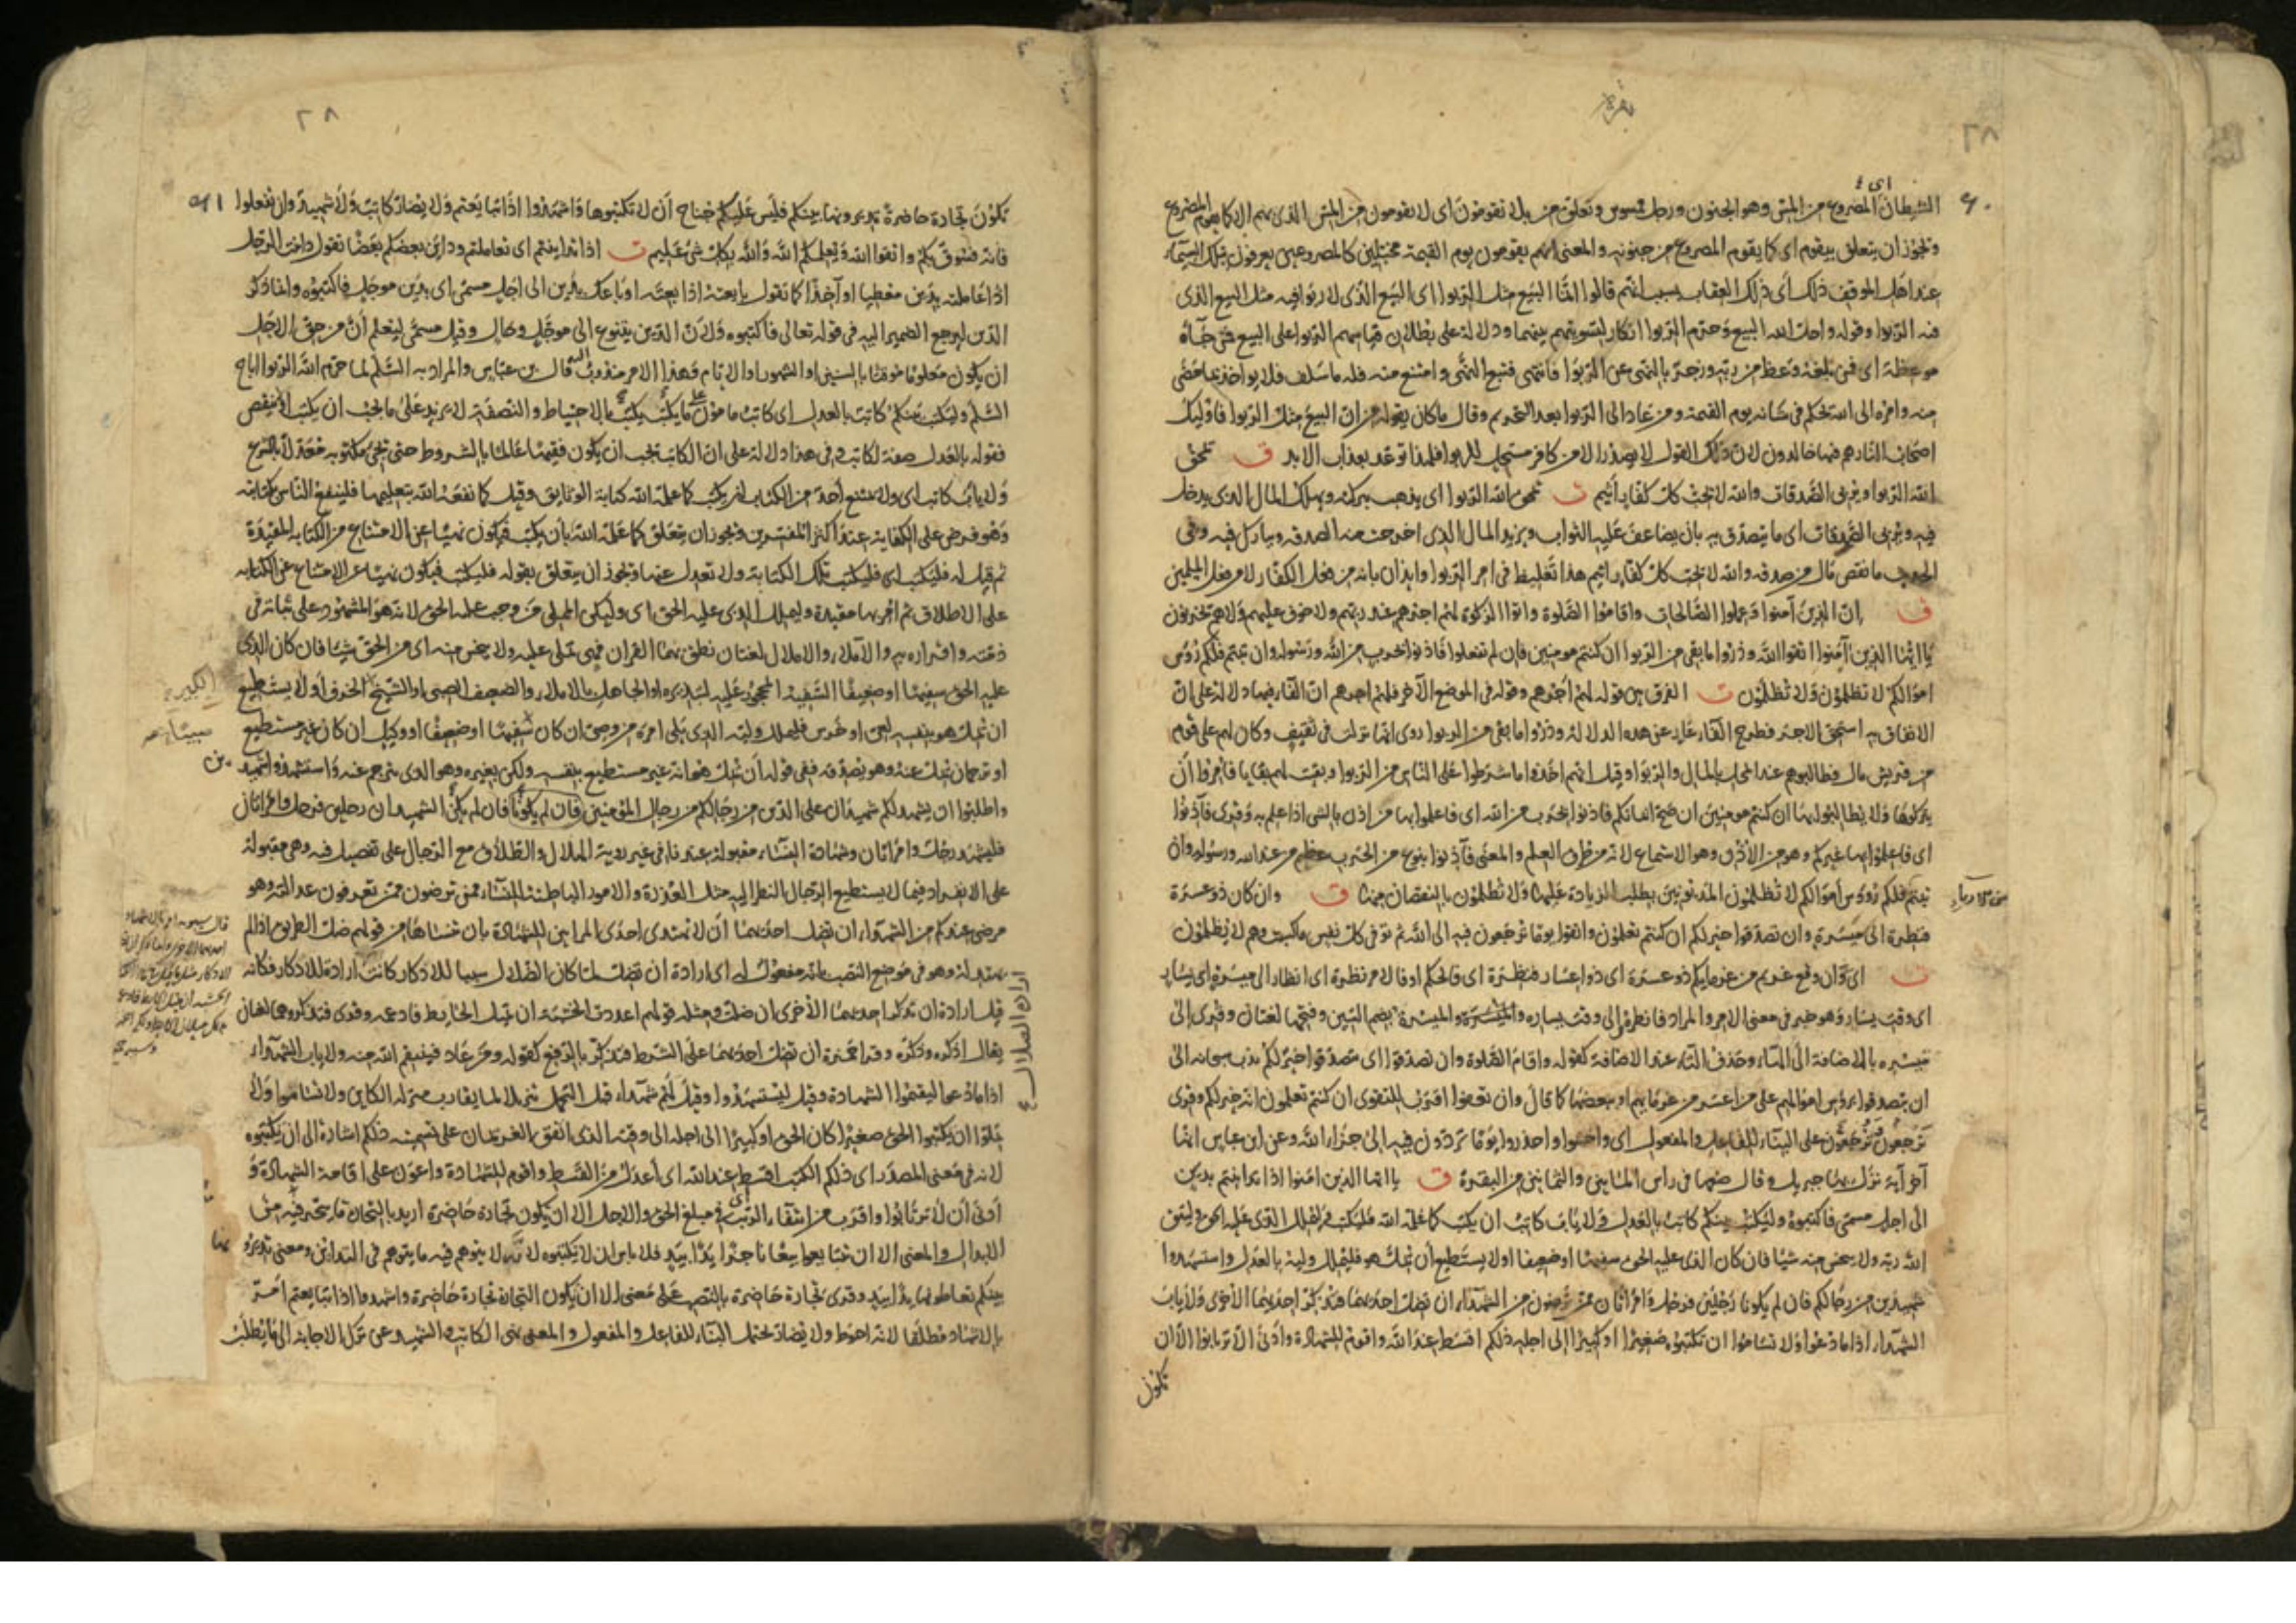 بقره
٢٨
٩٠
الشيطان اى المصروع من المس وهو الجنون ورجل ممسوس وتعلق من بلا يقومون اى لا يقومون من المس الذى بهم الا كما يقوم المصروع
ويجوز ان يتعلق بيقوم اى كما يقوم المصروع من جنونه والمعنى انهم يقومون يوم القيمة مخبلين كالمصروعين يعرفون بتلك السيماء
عند اهل الموقف ذلك اى ذلك العقاب بسبب انهم قالوا انما البيع مثل الربوا اى البيع الذى لا ربوا فيه مثل البيع الذى
فيه الربوا وقوله واحل الله البيع وحرم الربوا انكار لتسويتهم بينهما ودلالة على بطلان قياسهم الربوا على البيع فمن جاءه
موعظة اى فمن بلغه وعظ من ربه وزجر بالنهى عن الربوا فانتهى فتبع النهى وامتنع منه فله ما سلف فلا يواخذ بما مضى
منه وامره الى الله يحكم فى شانه يوم القيمة ومن عاد الى الربوا بعد التحريم وقال ما كان يقوله من ان البيع مثل الربوا فاوليك
اصحاب النار هم فيها خالدون لان ذلك القول لا يصدر الا من كافر مستحل للربوا فلهذا توعد بعذاب الابد ق يمحق
الله الربوا ويربى الصدقات والله لا يحب كل كفار اثيم ت يمحق الله الربوا اى يذهب ببركته ويهلك المال الذى يدخل
فيه ويربى الصدقات اى ما يتصدق به بان يضاعف عليه الثواب ويزيد المال الذى اخرجت منه الصدقه ويبارك فيه وفى
الحديث ما نقص مال من صدقه والله لا يحب كل كفار اثيم هذا تغليظ فى امر الربوا وايذان بانه من فعل الكفار لا من فعل المسلمين
ق ان الذين آمنوا وعملوا الصالحات واقاموا الصلوة واتوا الزكوة لهم اجرهم عند ربهم ولا خوف عليهم ولا هم يحزنون
يا ايها الذين آمنوا اتقوا الله وذروا ما بقى من الربوا ان كنتم مومنين فان لم تفعلوا فاذنوا بحرب من الله ورسوله وان تبتم فلكم رؤس
اموالكم لا تظلمون ولا تظلمون ت الفرق بين قوله لهم اجرهم وقوله فى الموضع الآخر فلهم اجرهم ان الفاء فيها دلالة على ان
الانفاق به استحق الاجر فطرح الفاء عار عن هذه الدلالة وذروا ما بقى من الربوا روى انها نزلت فى ثقيف وكان لهم على قوم
من قريش مال فطالبوهم عند المحل بالمال والربوا وقيل انهم اخذوا ما شرطوا على الناس من الربوا وبقيت لهم بقايا فامروا ان
يتركوها ولا يطالبوا بها ان كنتم مومنين ان صح ايمانكم فاذنوا بحرب من الله اى فاعلموا بها من اذن بالشى اذا علم به وقرى فآذنوا
اى فاعلموا بها غيركم وهو من الاذن وهو الاستماع لانه من طرق العلم والمعنى فآذنوا بنوع من الحرب عظيم من عند الله ورسوله وان
تبتم فلكم رؤوس اموالكم لا تظلمون المديونين بطلب الزيادة عليها ولا تظلمون بالنقصان منها ق وان كان ذو عسرة
فنظرة الى ميسرة وان تصدقوا خير لكم ان كنتم تعلمون واتقوا يوما ترجعون فيه الى الله ثم توفى كل نفس ما كسبت وهم لا يظلمون
ت اى وان وقع غريم من غرمايكم ذو عسرة اى ذو اعسار فنظرة اى فالحكم او فالامر نظرة اى انظار الى ميسرة اى يسار
اى وقت يسار وهو خبر فى معنى الامر والمراد فانظروه الى وقت يساره والميسرة والميسرة بضم السين وفتحها لغتان وقرى الى
ميسره بالاضافة الى الهاء وحذف التاء عند الاضافة كقوله واقام الصلوة وان تصدقوا اى تتصدقوا خير لكم ندب سبحانه الى
ان يتصدقوا برؤس اموالهم على من اعسر من غرمايهم او ببعضها كما قال وان تعفوا اقرب للتقوى ان كنتم تعلمون انه خير لكم وقرى
ترجعون وترجعون على البناء للفاعل والمفعول اى واخشوا واحذروا يوما تردون فيه الى جزاء الله وعن ابن عباس انها
آخر آية نزل بها جبريل وقال ضعها فى راس الماتين والثمانين من البقرة ق يا ايها الذين امنوا اذا تداينتم بدين
الى اجل مسمى فاكتبوه وليكتب بينكم كاتب بالعدل ولا ياب كاتب ان يكتب كما علمه الله فليكتب وليملل الذى عليه الحق وليتق
الله ربه ولا يبخس منه شيا فان كان الذى عليه الحق سفيها او ضعيفا او لا يستطيع ان يمل هو فليملل وليه بالعدل واستشهدوا
شهيدين من رجالكم فان لم يكونا رجلين فرجل وامراتان ممن ترضون من الشهداء ان تضل احديهما فتذكر احديهما الاخرى ولا ياب
الشهداء اذا ما دعوا ولا تساموا ان تكتبوه صغيرا او كبيرا الى اجله ذلكم اقسط عند الله واقوم للشهادة وادنى الا ترتابوا الا ان
تكون
٢٨
٩١
تكون تجارة حاضرة تديرونها بينكم فليس عليكم جناح ان لا تكتبوها واشهدوا اذا تبايعتم ولا يضار كاتب ولا شهيد وان تفعلوا
فانه فسوق بكم واتقوا الله ويعلمكم الله والله بكل شى عليم ت اذا تداينتم اى تعاملتم وداين بعضكم بعضا تقول داينت الرجل
اذا عاملته بدين معطيا او آخذا كما تقول بايعته اذا بعته او باعك بدين الى اجل مسمى اى بدين موجل فاكتبوه وانما ذكر
الدين ليرجع الضمير اليه فى قوله تعالى فاكتبوه ولان الدين يتنوع الى موجل وحال وقيل مسمى ليعلم ان من حق الاجل
ان يكون معلوما موقتا بالسنين او الشهور او الايام وهذا الامر مندوب اليه قال ابن عباس والمراد به السلم لما حرم الله الربوا اباح
السلم وليكتب بينكم كاتب بالعدل اى كاتب مامون على ما يكتب يكتب بالاحتياط والنصفة لا يزيد على ما يجب ان يكتب ولا ينقص
فقوله بالعدل صفة لكاتب وفى هذا دلالة على ان الكاتب يجب ان يكون فقيها عالما بالشروط حتى يجى مكتوبه معدلا بالشرع
ولا ياب كاتب اى ولا يمتنع احد من الكتاب ان يكتب كما علمه الله كتابة الوثايق وقيل كما نفعه الله بتعليمها فلينفع الناس بكتابته
وهو فرض على الكفاية عند اكثر المفسرين ويجوز ان يتعلق كما علمه الله بان يكتب فيكون نهيا عن الامتناع من الكتابة المقيدة
ثم قيل له فليكتب اى فليكتب تلك الكتابة ولا تعدل عنها ويجوز ان يتعلق بقوله فليكتب فيكون نهيا عن الامتناع عن الكتابه
على الاطلاق ثم امر بها مقيدة وليملل الذى عليه الحق اى وليكن المملى من وجب عليه الحق لانه هو المشهود على ثباته فى
ذمته واقراره به والاملاء والاملال لغتان نطق بهما القران فهى تملى عليه ولا يبخس منه اى من الحق شيئا فان كان الذى
عليه الحق سفيها او ضعيفا السفيه المحجور عليه لتبذيره او الجاهل بالاملاء والضعيف الصبى او الشيخ الخرف او لا يستطيع
ان يمل هو بنفسه لعى او خرس فليملل وليه الذى يلى امره من وصى ان كان سفيها او ضعيفا او وكيل ان كان غير مستطيع
او ترجمان يمل عنه وهو يصدقه ففى قوله ان يمل هو انه غير مستطيع بنفسه ولكن بغيره وهو الذى يترجم عنه واستشهدوا شهيد
ين
واطلبوا ان يشهد لكم شهيدان على الدين من رجالكم من رجال المؤمنين فان لم يكونا فان لم يكن الشهيدان رجلين فرجل وامراتان
فليشهد رجل وامراتان وشهادة النساء مقبولة عندنا فى غير روية الهلال والطلاق مع الرجال على تفصيل فيه وهى مقبولة
على الانفراد فيما لا يستطيع الرجال النظر اليه مثل العذرة والامور الباطنة للنساء ممن ترضون ممن تعرفون عدالته وهو
مرضى عندكم من الشهداء ان تضل احديهما ان لا تهتدى احدى المراتين للشهادة بان تنساها من قولهم ضل الطريق اذا لم
يهتد له وهو فى موضع النصب بانه مفعول له اى ارادة ان تضل لما كان الضلال سببا للاذكار كانت ارادة للاذكار فكانه
قيل ارادة ان تذكر احديهما الاخرى ان ضلت ومثله قولهم اعددت الخشبة ان يميل الحايط فادعمه وقرى فتذكر وهما لغتان
يقال اذكره وذكره وقرا حمزة ان تضل احديهما على الشرط فتذكر بالرفع كقوله ومن عاد فينتقم الله منه ولا ياب الشهداء
اذا ما دعوا ليقيموا الشهادة وقيل ليستشهدوا وقيل لهم شهداء قبل التحمل تنزيلا لما يقارب منزلة الكاين ولا تساموا ولا
تملوا ان يكتبوا الحق صغيرا كان الحق او كبيرا الى اجله الى وقته الذى اتفق الغريمان على تسميته ذلكم اشارة الى ان يكتبوه
لانه فى معنى المصدر اى ذلكم الكتب اقسط عند الله اى اعدل من القسط واقوم للشهادة واعون على اقامة الشهادة و
ادنى ان لا ترتابوا واقرب من انتفاء الريب فى مبلغ الحق والاجل الا ان يكون تجارة حاضرة اريد بالتجارة ما يتجر فيه من
الابدال والمعنى الا ان تتبايعوا بيعا ناجزا يدا بيد فلا باس ان لا يكتبوه لانه لا يتوهم فيه ما يتوهم فى التداين ومعنى تديرو
نها
بينكم تعاطونها يدا بيد وقرى تجارة حاضرة بالنصب على معنى الا ان يكون التجارة تجارة حاضرة واشهدوا اذا تبايعتم امر
بالاشهاد مطلقا لانه احوط ولا يضار يحتمل البناء للفاعل والمفعول والمعنى نهى الكاتب والشهيد عن ترك الاجابة الى ما يطلب